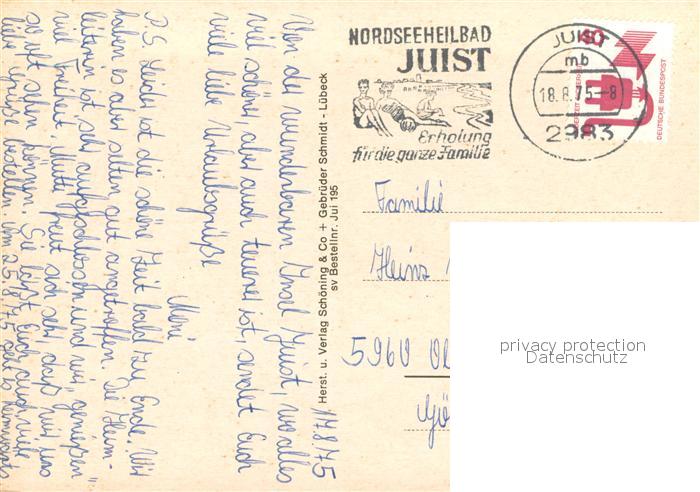 NORDSEEHEILBAD
JUIST
Erholung
für die ganze Familie
JUIST
mb
18.8.75-8
2983
40
DEUTSCHE BUNDESPOST
17.8.75
Von der wunderbaren Insel Juist, wo alles
viel schöner, aber auch teuerer ist, sendet Euch
viele liebe Urlaubsgrüße
Moni
P.S. Leider ist die schöne Zeit bald zu Ende. Wir
haben es aber selten gut angetroffen. Die Heim-
leiterin ist sehr aufgeschlossen und wir "genießen"
viel Freiheit. Mutter freut sich sehr, daß wir uns
so oft sehen können. Sie läßt Euch auch
liebe Grüße bestellen. Vom 25.8.75
Herst. u. Verlag Schöning & Co + Gebrüder Schmidt - Lübeck
sv Bestellnr. Jui 195
Familie
Heinz
5960
privacy protection
Datenschutz